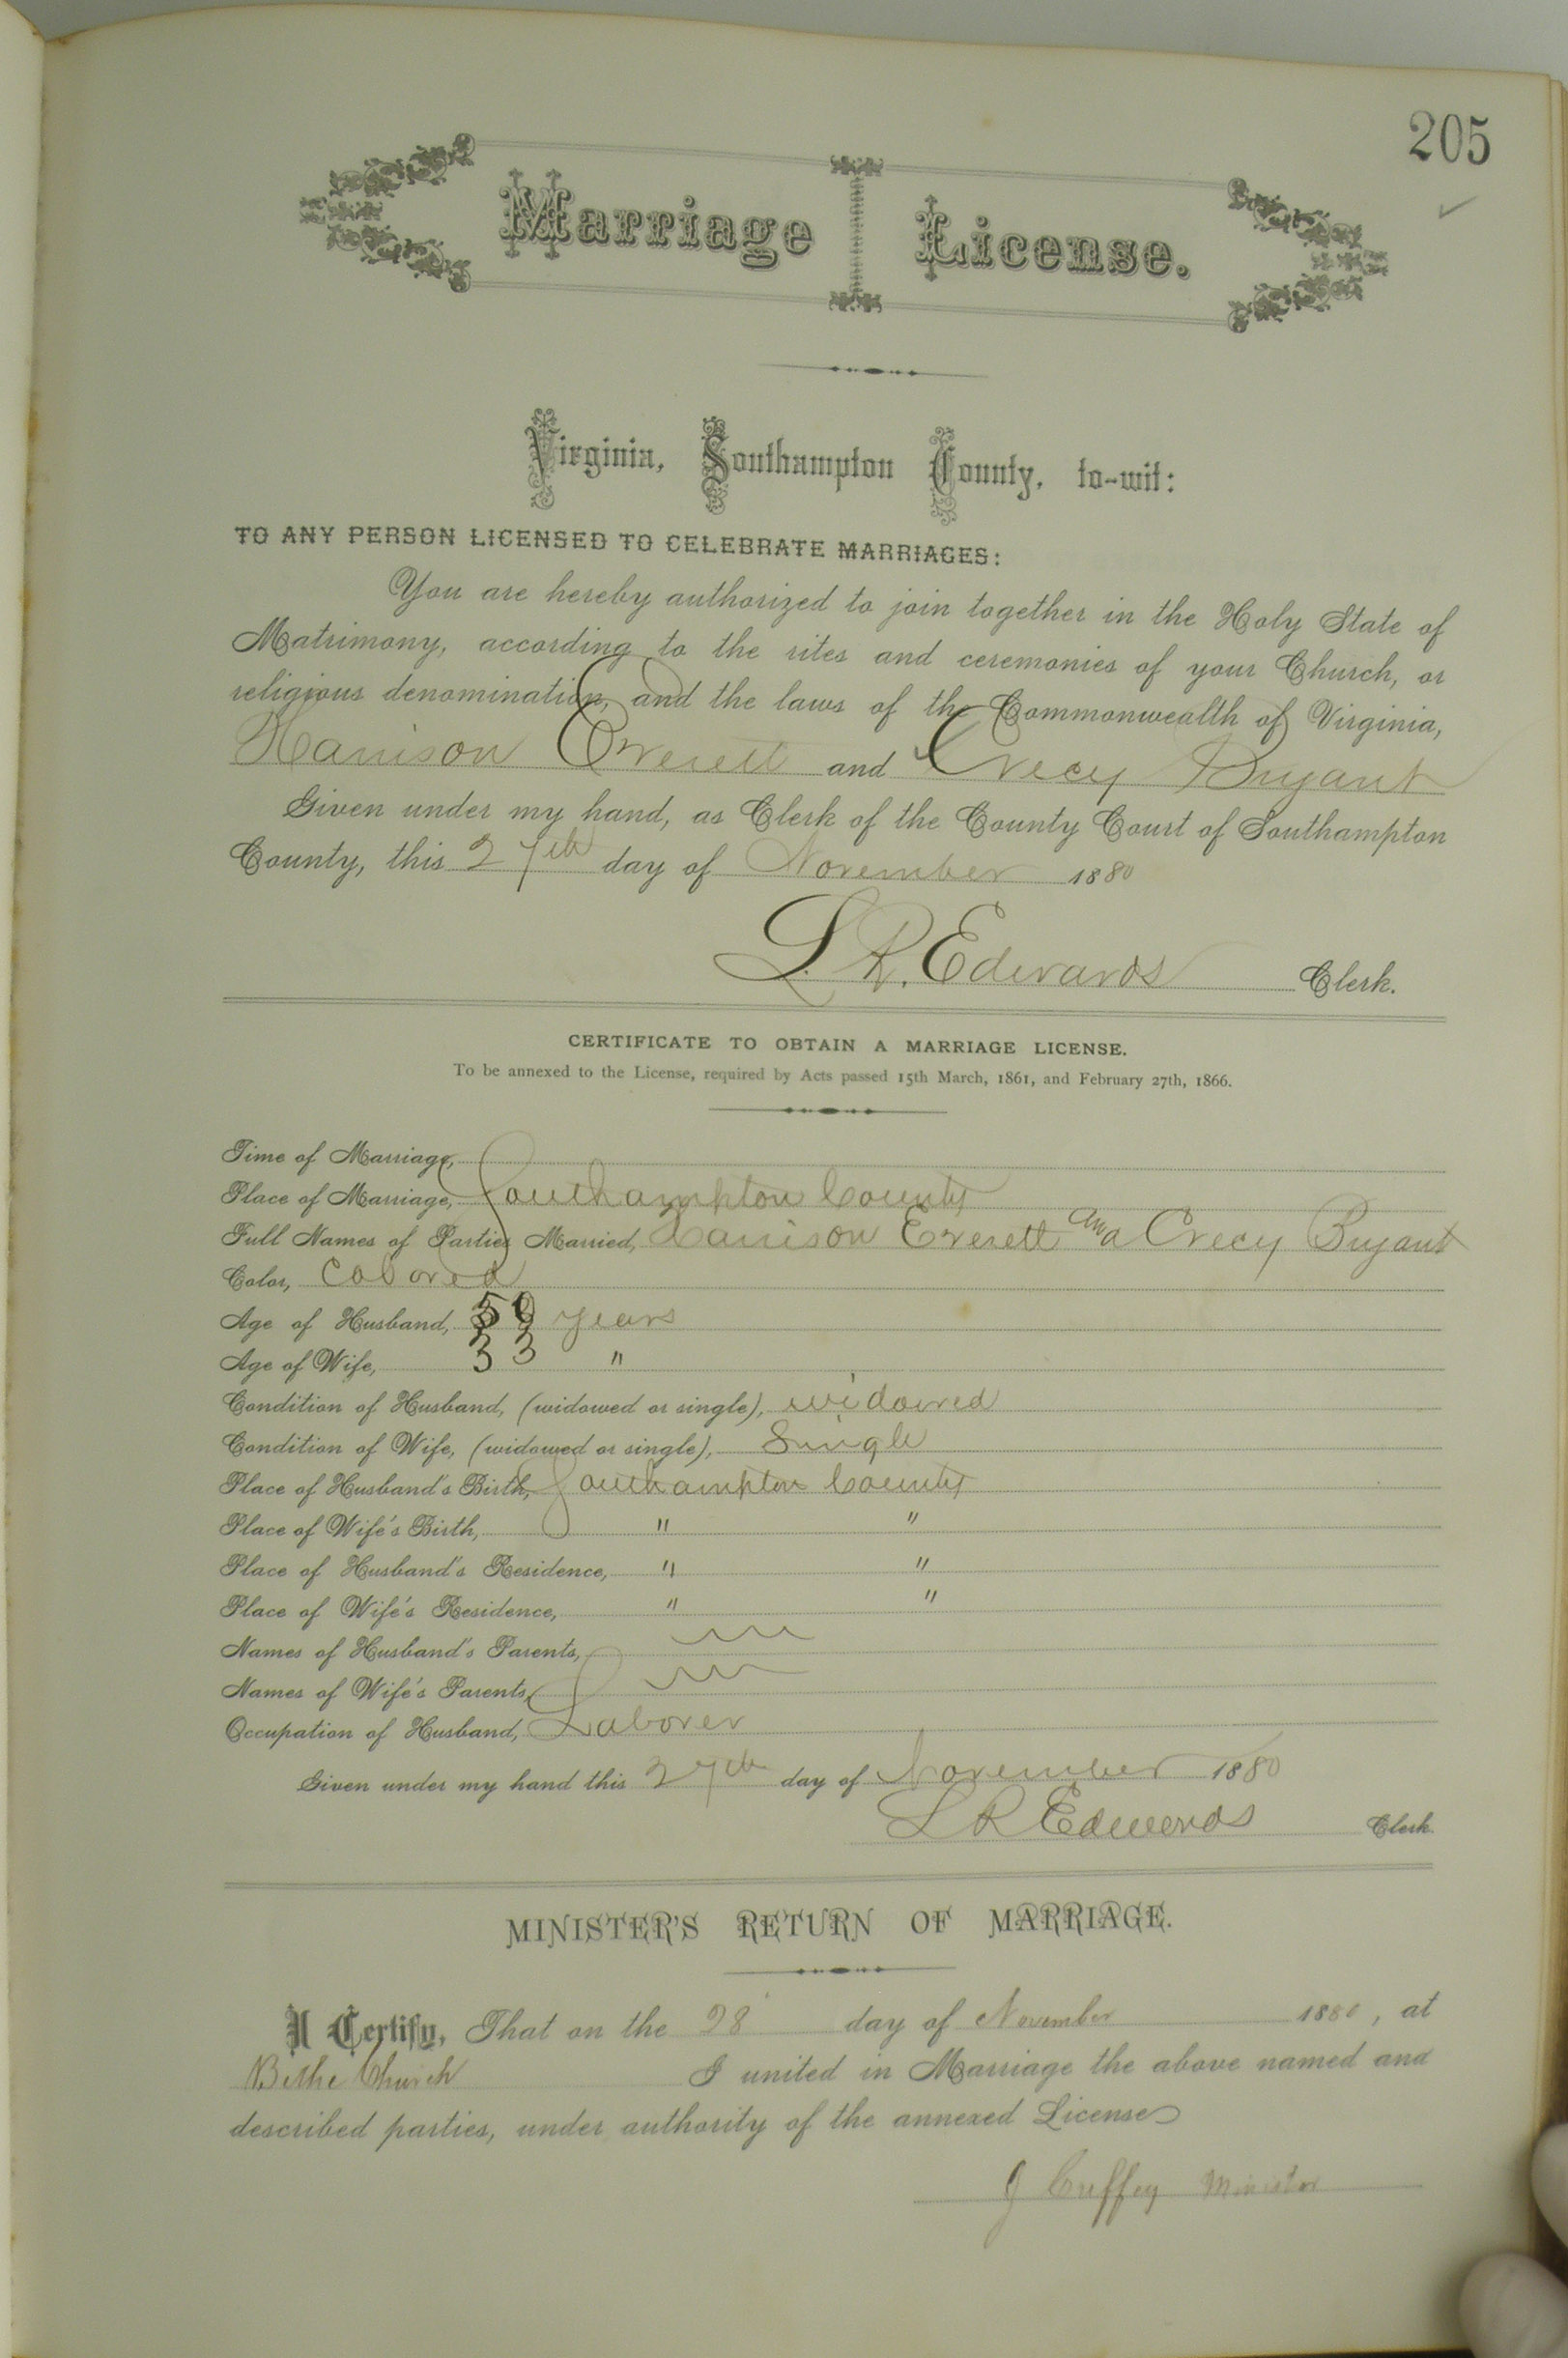 205
Marriage License.
Virginia, Southampton County, to-wit:
TO ANY PERSON LICENSED TO CELEBRATE MARRIAGES:
You are hereby authorized to join together in the Holy State of
Matrimony, according to the rites and ceremonies of your Church, or
religious denomination, and the laws of the Commonwealth of Virginia,
Harrison Everett and Crecy Bryant
Given under my hand, as Clerk of the County Court of Southampton
County, this 27th day of November 1880
L. R. Edwards Clerk.
CERTIFICATE TO OBTAIN A MARRIAGE LICENSE.
To be annexed to the License, required by Acts passed 15th March, 1861, and February 27th, 1866.
Time of Marriage,
Place of Marriage, Southampton County
Full Names of Parties Married, Harrison Everett and Crecy Bryant
Color, Colored
Age of Husband, years
Age of Wife, 33 "
Condition of Husband, (widowed or single), widowed
Condition of Wife, (widowed or single), Single
Place of Husband's Birth, Southampton County
Place of Wife's Birth, " "
Place of Husband's Residence, " "
Place of Wife's Residence, " "
Names of Husband's Parents,
Names of Wife's Parents,
Occupation of Husband, Laborer
Given under my hand this 27th day of November 1880
L R Edwards Clerk
MINISTER'S RETURN OF MARRIAGE.
I Certify, That on the 28 day of November 1880, at
Bethe Church I united in Marriage the above named and
described parties, under authority of the annexed License
J Cuffey Minister